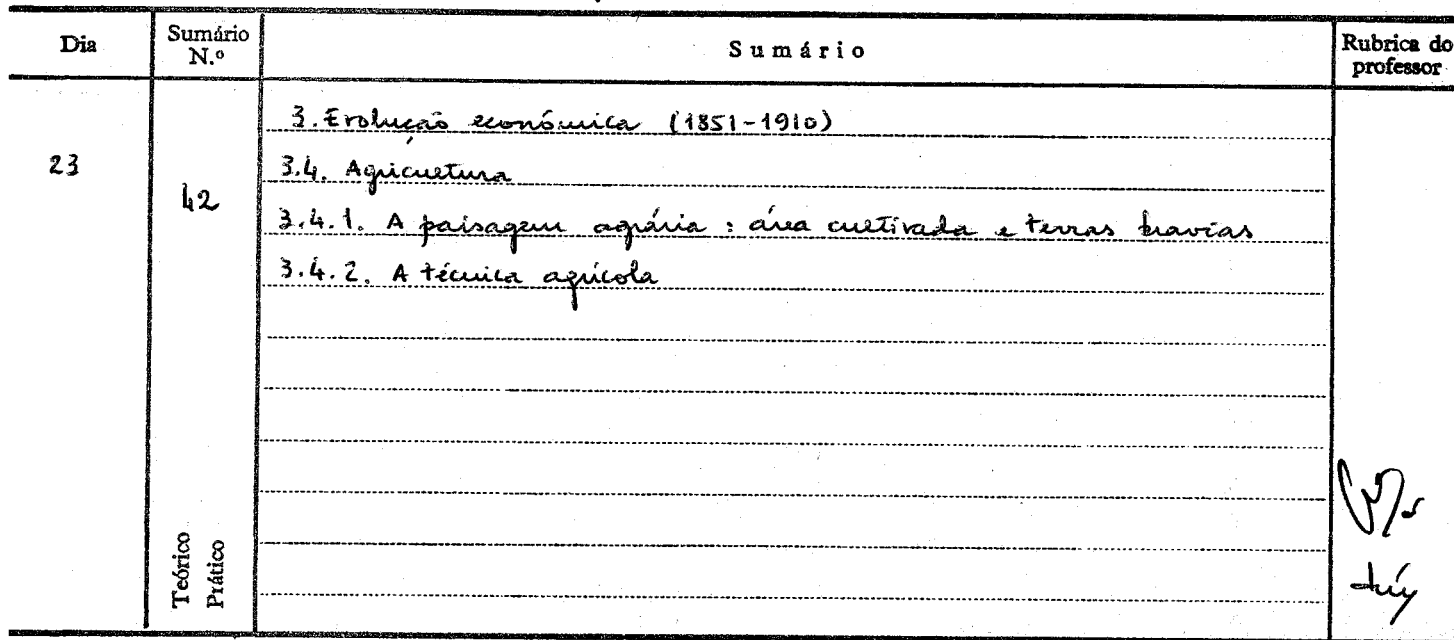 Dia
Sumário N.º
Sumário
Rubrica do professor
23
42
3. Evolução económica (1851-1910)
3.4. Agricultura
3.4.1. A paisagem agrária : área cultivada e terras bravias
3.4.2. A técnica agrícola
Teórico
Prático